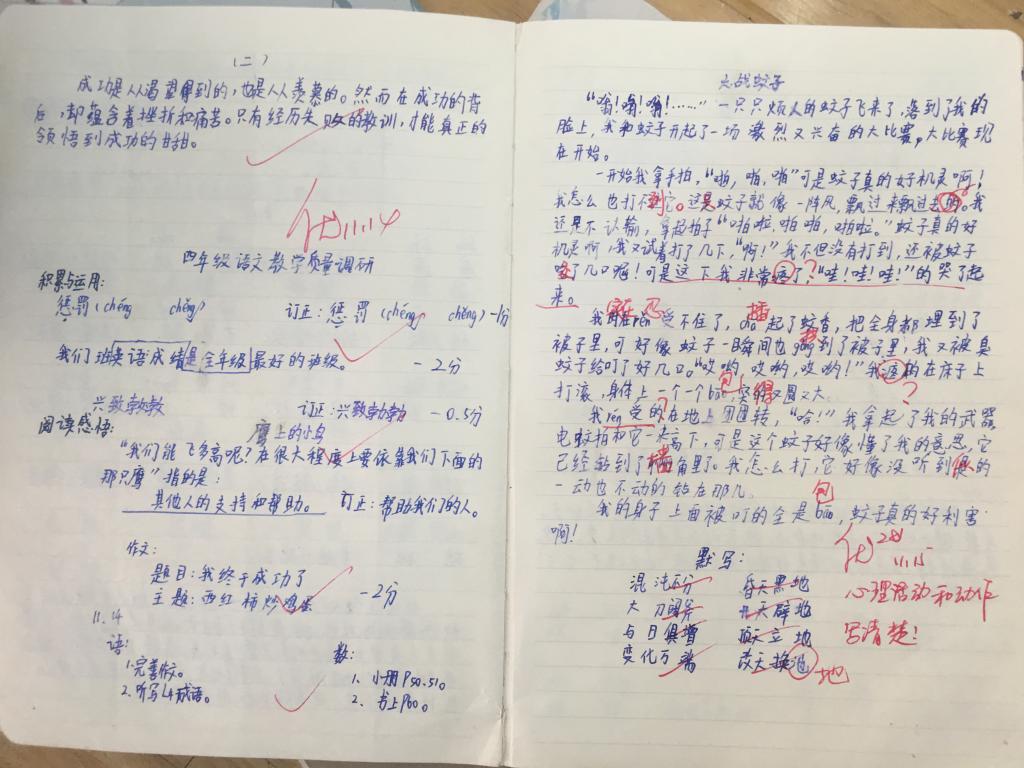 (二)
成功是人人渴望得到的,也是人人羡慕的。然而在成功的背
后,却蕴含着挫折和痛苦。只有经历失败的教训,才能真正的
领悟到成功的甘甜。
优11.14
四年级语文教学质量调研
积累与运用:
惩罚(chéng chěng) 订正:惩罚(chéng chěng)-1分
我们班英语成绩是全年级最好的班级。 -2分
兴致勃勃 订正:兴致勃勃 -0.5分
阅读感悟:
鹰上的小鸟
“我们能飞多高呢?在很大程度上要依靠我们下面的
那只鹰”指的是:
其他人的支持和帮助。 订正:帮助我们的人。
作文:
题目:我终于成功了
主题:西红柿炒鸡蛋 -2分
11.4
语: 数:
1.完善作文。 1、小册P50.51。
2.听写L4成语。 2、书上P60。
大战蚊子
“嗡!嗡!嗡!……”一只只烦人的蚊子飞来了,落到了我的
脸上,我和蚊子开起了一场激烈又兴奋的大比赛,大比赛现
在开始。
一开始我拿手拍,“啪,啪,啪”可是蚊子真的好机灵啊!
我怎么也打不到它。这是蚊子就像一阵风,飘过来飘过去的。我
还是不认输,拿拉拍子“啪啦,啪啪,啪啦。”蚊子真的好
机灵啊,我又试着打了几下,“啊!”我不但没有打到,还被蚊子
叮了几口呢!可是这下我非常疼了?“哇!哇!哇!”的哭了起
来。
我实在忍rěn受不住了,点起了蚊香,把全身都埋到了
被子里,可好像蚊子一瞬间也到了被子里,我又被臭
蚊子给叮了好几口。“哎哟,哎哟,哎哟!”我的在床上
打滚,身体上一个一个包bāo,变得又圆又大。
我rěn受的在地上团团转,“哈!”我拿起了我的武器
电蚊拍和它一来高下,可是这个蚊子好像懂了我的意思,它
已经到了墙角里了。我怎么打,它好像没听到似的
一动也不动的钻在那儿。
我的身子上面被叮的全是包bāo,蚊子真的好利害
啊!
优28
11.15
心理活动和动作
写清楚!
默写:
混沌不分 昏天黑地
大刀阔斧 开天辟地
与日俱增 顶天立地
变化万端 改天换池 地